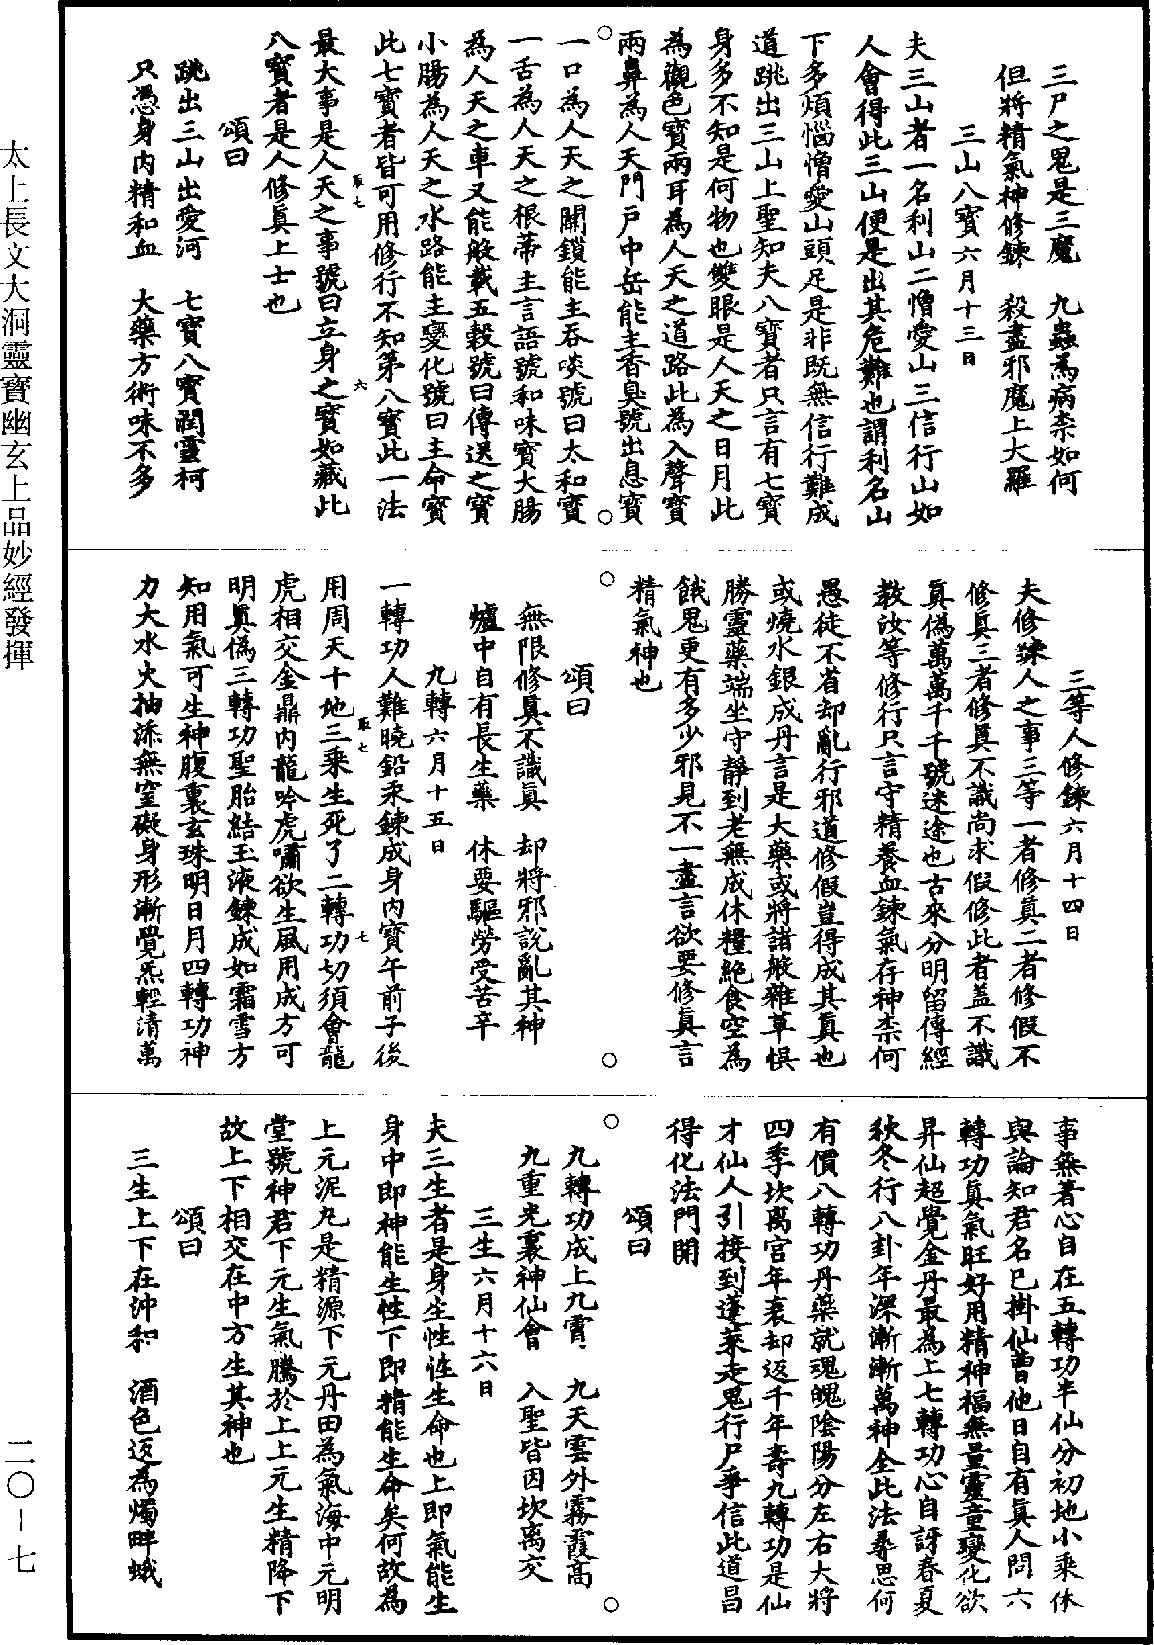 三尸之鬼是三魔　九蟲為病柰如何
但將精氣神修鍊　殺盡邪魔上大羅
三山八寶六月十三日
夫三山者一名利山二憎愛山三信行山如
人會得此三山便是出其危難也謂利名山
下多煩惱憎愛山頭足是非既無信行難成
道跳出三山上聖知夫八寶者只言有七寶
身多不知是何物也雙眼是人天之日月此
為觀色寶兩耳為人天之道路此為入聲寶
兩鼻為人天門戶中岳能主香臭號出息寶
一口為人天之關鎖能主吞啖號曰太和寶
一舌為人天之根蒂主言語號和味寶大腸
為人天之車又能般載五穀號曰傳送之寶
小腸為人天之水路能主變化號曰主命寶
此七寶者皆可用修行不知第八寶此一法
最大事是人天之事號曰立身之寶如藏此
八寶者是人修真上士也
頌曰
跳出三山出愛河　七寶八寶潤靈柯
只憑身內精和血　大藥方術味不多
三等人修鍊六月十四日
夫修鍊人之事三等一者修真二者修假不
修真三者修真不識尚求假修此者蓋不識
真偽萬萬千千號迷途也古來分明留傳經
教汝等修行只言守精養血鍊氣存神柰何
愚徒不省却亂行邪道修假豈得成其真也
或燒水銀成丹言是大藥或將諸般雜草悞
勝靈藥端坐守靜到老無成休糧絕食空為
餓鬼更有多少邪見不一盡言欲要修真言
精氣神也
頌曰
無限修真不識真　却將邪說亂其神
爐中自有長生藥　休要驅勞受苦辛
九轉六月十五日
一轉功人難曉鉛汞鍊成身內寶午前子後
用周天十地三乘生死了二轉功切須會龍
虎相交金鼎內龍吟虎嘯欲生風用成方可
明真偽三轉功聖胎結玉液鍊成如霜雪方
知用氣可生神腹裏玄珠明日月四轉功神
力大水火抽添無窒礙身形漸覺炁輕清萬
事無著心自在五轉功半仙分初地小乘休
與論知君名已掛仙曹他日自有真人問六
轉功真氣旺好用精神福無量靈童變化欲
昇仙超覺金丹最為上七轉功心自訝春夏
秋冬行八卦年深漸漸萬神全此法尋思何
有價八轉功丹藥就魂魄陰陽分左右大將
四季坎离宮年衰却返千年壽九轉功是仙
才仙人引接到蓬萊走鬼行尸爭信此道昌
得化法門開
頌曰
九轉功成上九霄　九天雲外霧霞高
九重光裏神仙會　入聖皆因坎离交
三生六月十六日
夫三生者是身生性性生命也上即氣能生
身中即神能生性下即精能生命矣何故為
上元泥丸是精源下元丹田為氣海中元明
堂號神君下元生氣騰於上上元生精降下
故上下相交在中方生其神也
頌曰
三生上下在沖和　酒色返為燭畔蛾
太上長文大洞靈寶幽玄上品妙經發揮
二〇－七